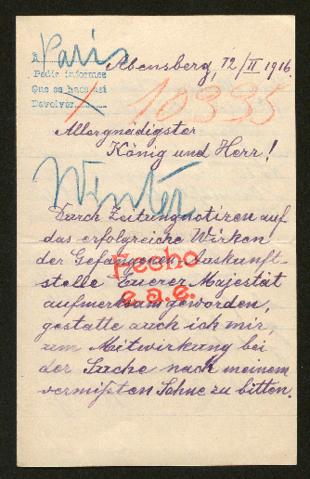 à Paris
Pedir informes
Que se hace así
Devolver
Abensberg, 12/II 1916.
10335
Allergnädigster
König und Herr!
Winter
Durch Zeitungnotizen auf
das erfolgreiche Wirken
der Gefangenen Auskunft-
stelle Euerer Majestät
Hecho
e.a.e.
aufmerksam geworden,
gestatte auch ich mir,
um Mitwirkung bei
der Suche nach meinem
vermißten Sohne zu bitten.